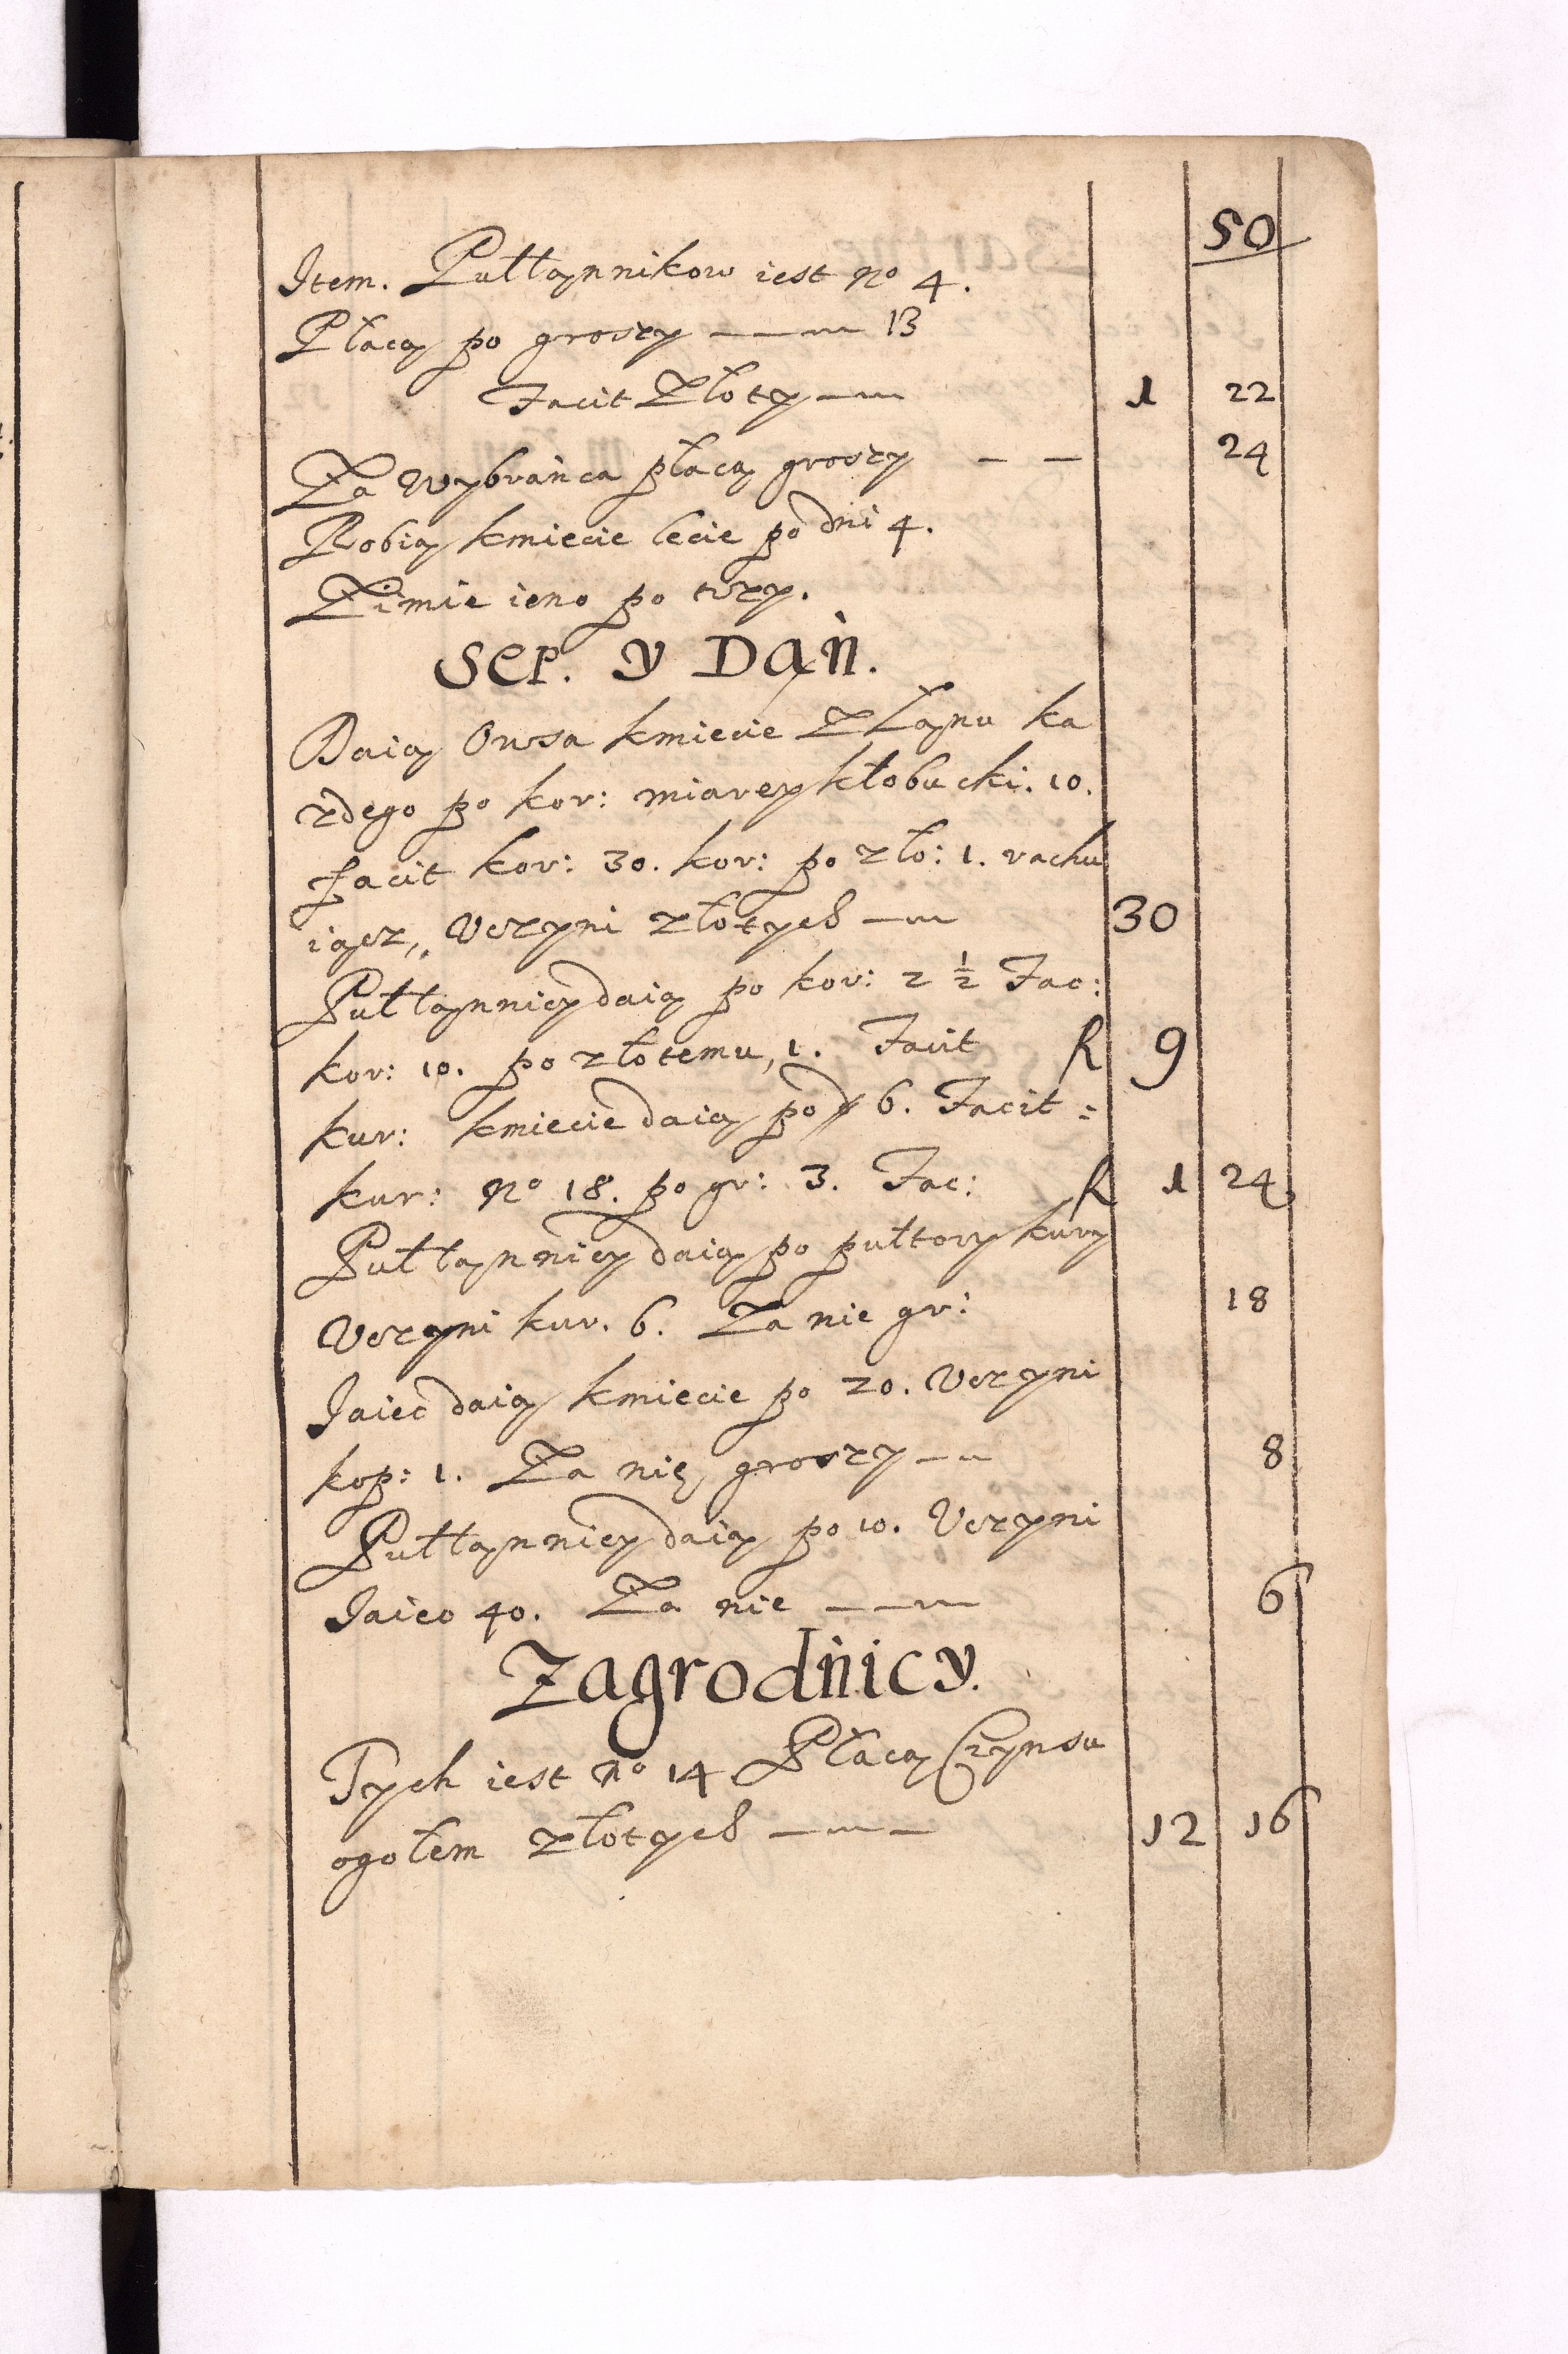 50
Item. Pułłannikow iest no 4.
Płacą po groszy 13
Facit Złoty 1 22
Za Wybrańca płacą groszy 24
Robią kmiecie lecie po dni 4.
Zimie ieno po trzy.
Sep. y Dań.
Daią Owsa kmiecie Z Łanu ka
zdego po kor: miarey kłobucki. 10.
facit kor: 30. kor: po zło: 1. rachu
iącz, Uczyni złotych 30
Pułłannicy daią po kor: 2 ½ Fac:
kor: 10. po złotemu, 1. Facit R 9
kur: kmiecie daią po 6. Facit:
kur: no 18. po gr: 3. Fac: R 1 24
Pułłannicy daią po pułtory kury
Uczyni kur. 6. Za nie gr: 18
Iaiec daią kmiecie po 20. Uczyni
kop: 1. Za nię groszy 8
Pułłannicy daią po 10. Uczyni
Iaiec 40. Za nie 6
Zagrodnicy.
Tych iest no 14 Płacą Czynsu
ogołem złotych 12 16